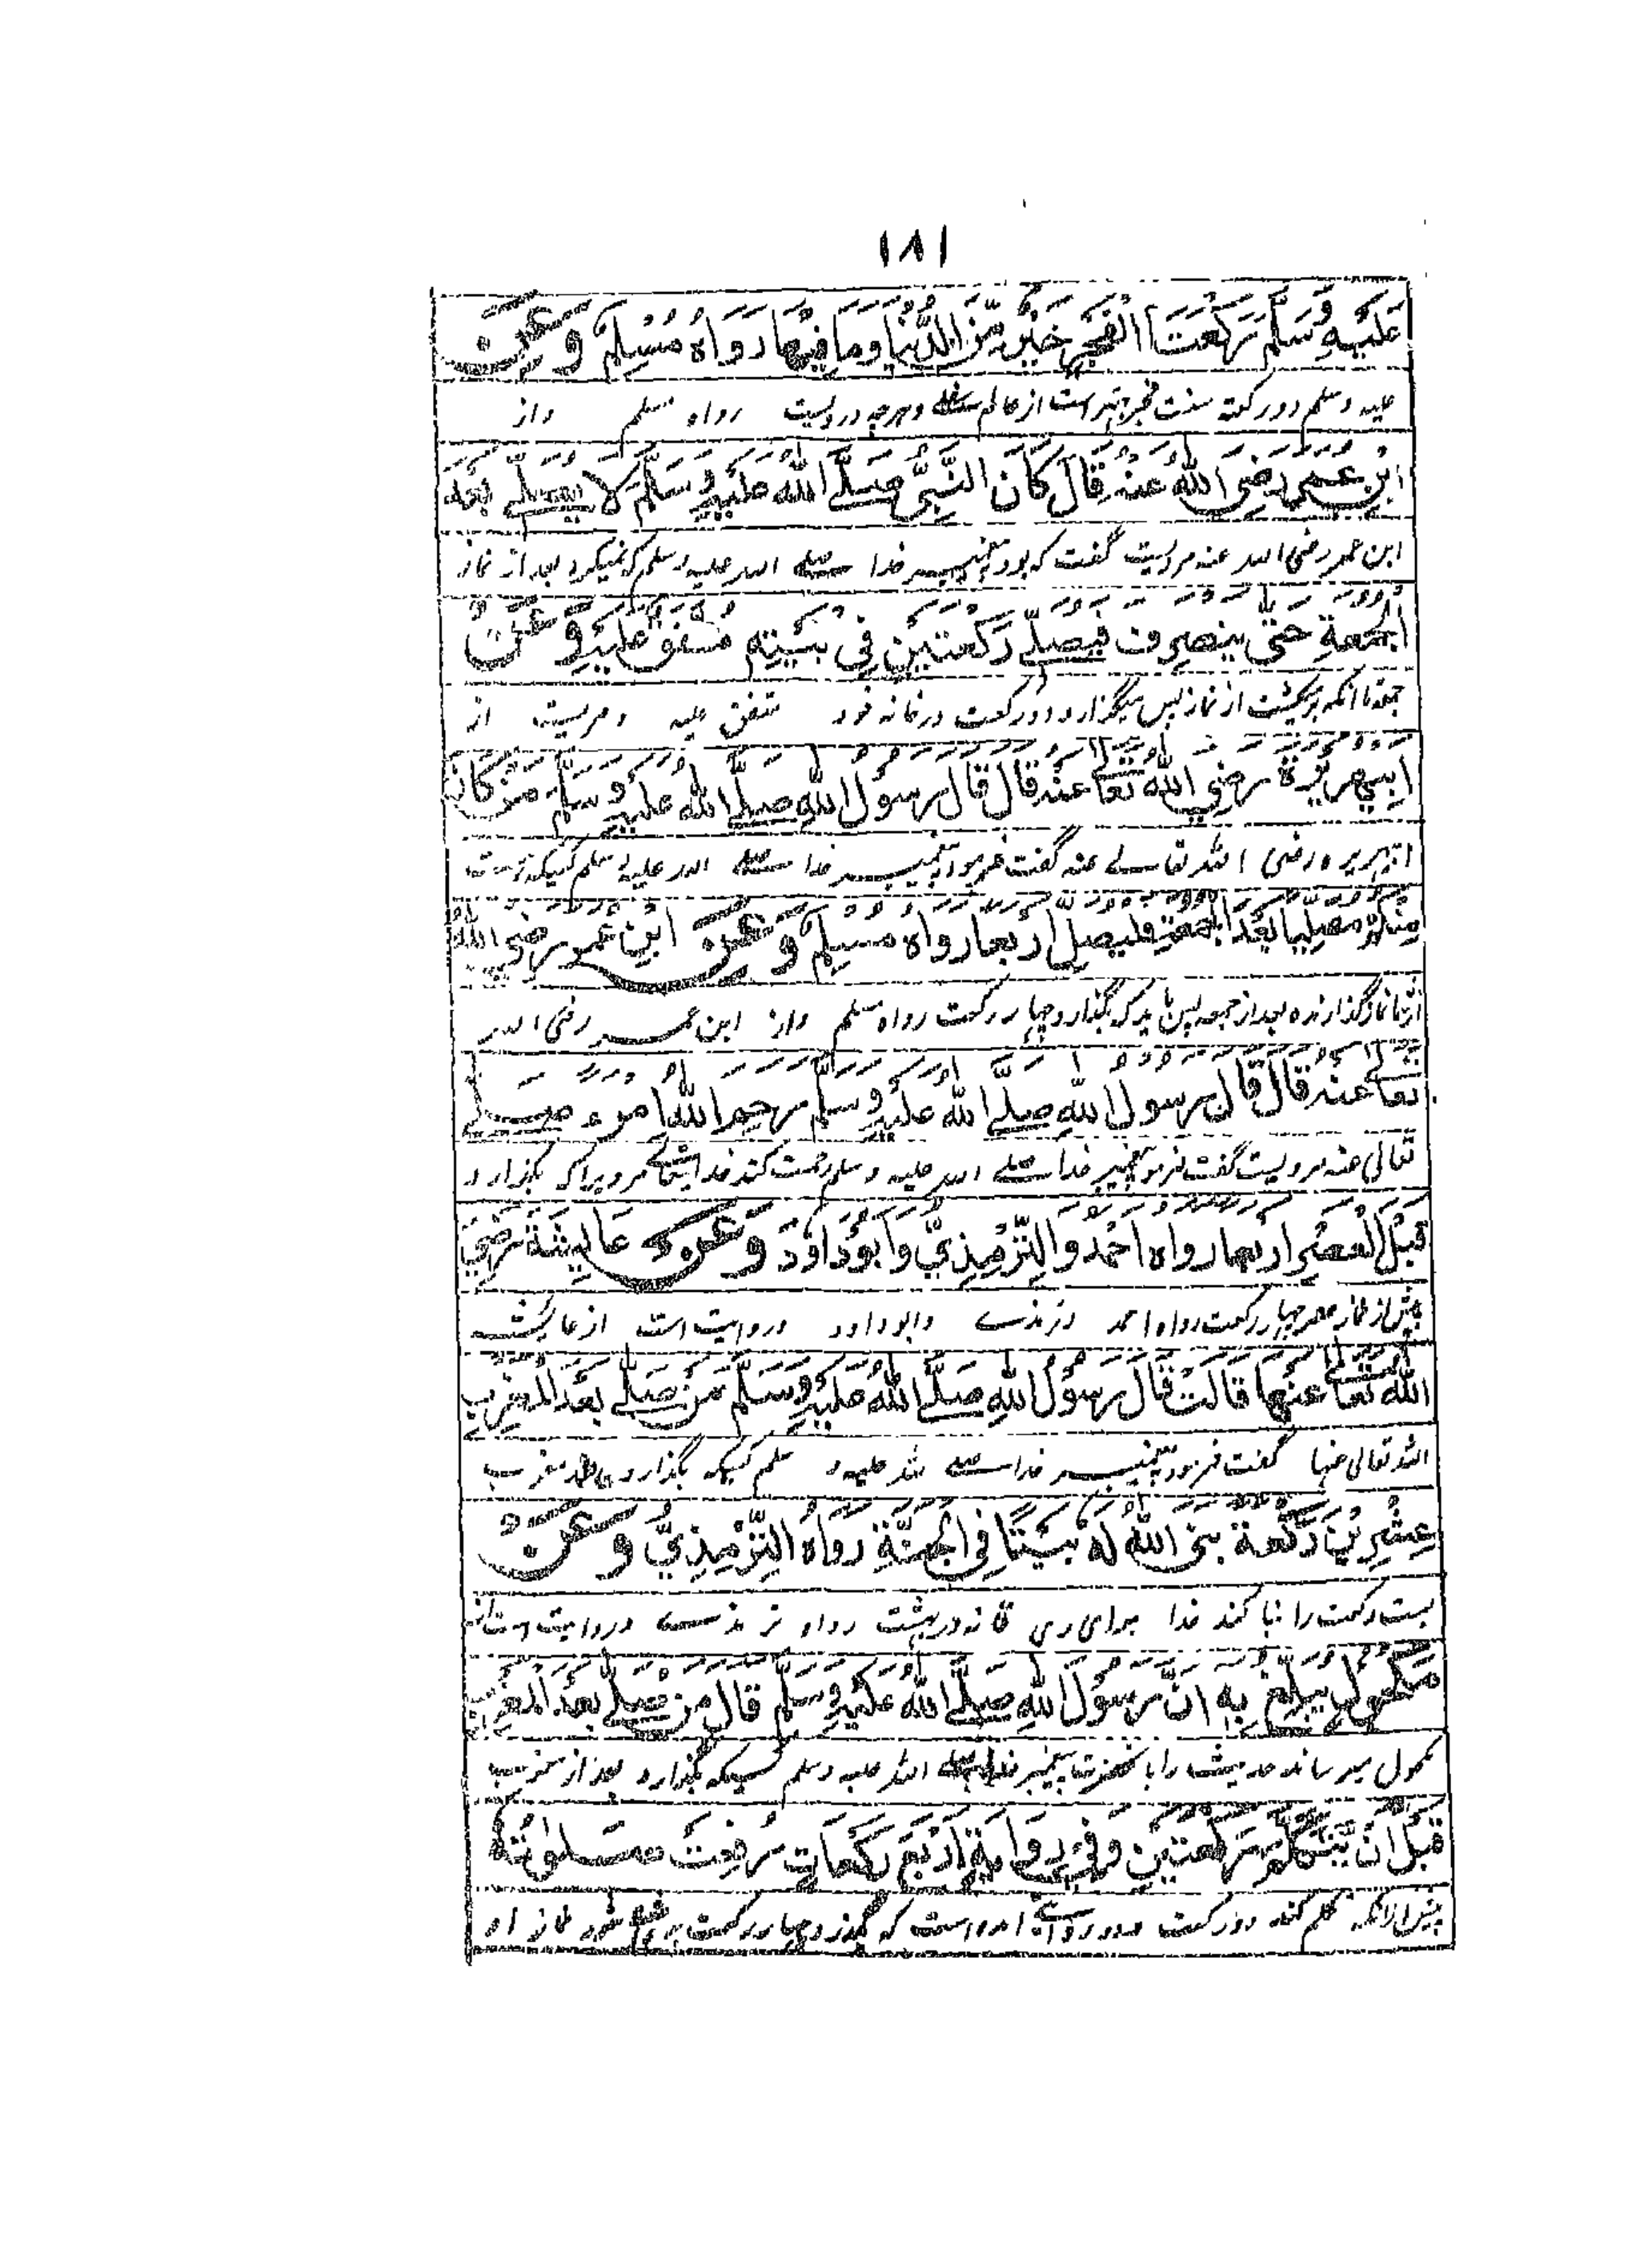 ١٨١
عَلَيْهِ وَسَلَّمَ رَكْعَتَا الْفَجْرِ خَيْرٌ مِّنَ الدُّنْيَا وَمَا فِيْهَا رَوَاهُ مُسْلِمٌ وَعَنْ
علیه وسلم دو رکعت سنت فجر بهتر است از عالم سفلے وهرچه دروست رواه مسلم واز
ابْنِ عُمَرَ رَضِيَ اللهُ عَنْهُ قَالَ كَانَ النَّبِيُّ صَلَّے اللهُ عَلَيْهِ وَسَلَّمَ لَا يُصَلِّے بَعْدَ
ابن عمر رضی الله عنه مرویست گفت که بود پیغمبر خدا صلے الله علیه وسلم که نمیکرد بعد از نماز
الْجُمُعَةِ حَتّٰى يَنْصَرِفَ فَيُصَلِّے رَكْعَتَيْنِ فِيْ بَيْتِهِ مُتَّفَقٌ عَلَيْهِ وَعَنْ
جمعه تا آنکه برمیگشت از نماز پس میگزارد دو رکعت در خانه خود متفق علیه ومرویست از
اَبِيْ هُرَيْرَةَ رَضِيَ اللهُ تَعَالٰے عَنْهُ قَالَ قَالَ رَسُوْلُ اللهِ صَلَّے اللهُ عَلَيْهِ وَسَلَّمَ مَنْ كَانَ
ابی هریره رضی الله تعالے عنه گفت فرمود پیغمبر خدا صلے الله علیه وسلم کسیکه هست
مِنْكُمْ مُصَلِّيًا بَعْدَ الْجُمُعَةِ فَلْيُصَلِّ اَرْبَعًا رَوَاهُ مُسْلِمٌ وَعَنْ ابْنِ عُمَرَ رَضِيَ اللهُ
از شما نماز گذارنده بعد از جمعه پس باید که بگذارد چهار رکعت رواه مسلم واز ابن عمر رضی الله
تَعَالٰے عَنْهُ قَالَ قَالَ رَسُوْلُ اللهِ صَلَّے اللهُ عَلَيْهِ وَسَلَّمَ رَحِمَ اللهُ امْرَءً صَلَّے
تعالی عنه مرویست گفت فرمود پیغمبر خدا صلے الله علیه وسلم رحمت کند خدایتعالے مردیرا که بگزارد
قَبْلَ الْعَصْرِ اَرْبَعًا رَوَاهُ اَحْمَدُ وَالتِّرْمِذِيُّ وَاَبُوْدَاوٗدَ وَعَنْ عَايِشَةَ رَضِيَ
پیش از نماز عصر چهار رکعت رواه احمد وترمذے وابوداود وروایت است از عایشه
اللهُ تَعَالٰے عَنْهَا قَالَتْ قَالَ رَسُوْلُ اللهِ صَلَّے اللهُ عَلَيْهِ وَسَلَّمَ مَنْ صَلّٰے بَعْدَ الْمَغْرِبِ
الله تعالی عنها گفت فرمود پیغمبر خدا صلے الله علیه و سلم کسیکه بگذارد بعد مغرب
عِشْرِيْنَ رَكْعَةً بَنَى اللهُ لَهُ بَيْتًا فِي الْجَنَّةِ رَوَاهُ التِّرْمِذِيُّ وَعَنْ
بست رکعت را بنا کند خدا برای وی خانه در بهشت رواه ترمذے وروایت است از
مَكْحُوْلٍ يَبْلُغُ بِهِ اَنَّ رَسُوْلَ اللهِ صَلَّے اللهُ عَلَيْهِ وَسَلَّمَ قَالَ مَنْ صَلّٰے بَعْدَ الْمَغْرِبِ
مکحول میرساند حدیث را با پیغمبر خدا صلے الله علیه وسلم کسیکه بگذارد بعد از مغرب
قَبْلَ اَنْ يَّتَكَلَّمَ رَكْعَتَيْنِ وَفِيْ رِوَايَةٍ اَرْبَعَ رَكَعَاتٍ رُفِعَتْ صَلٰوتُهُ
پیش از آنکه تکلم کند دو رکعت ودر روایتے آمده است که بگذرد چهار رکعت شود نماز او